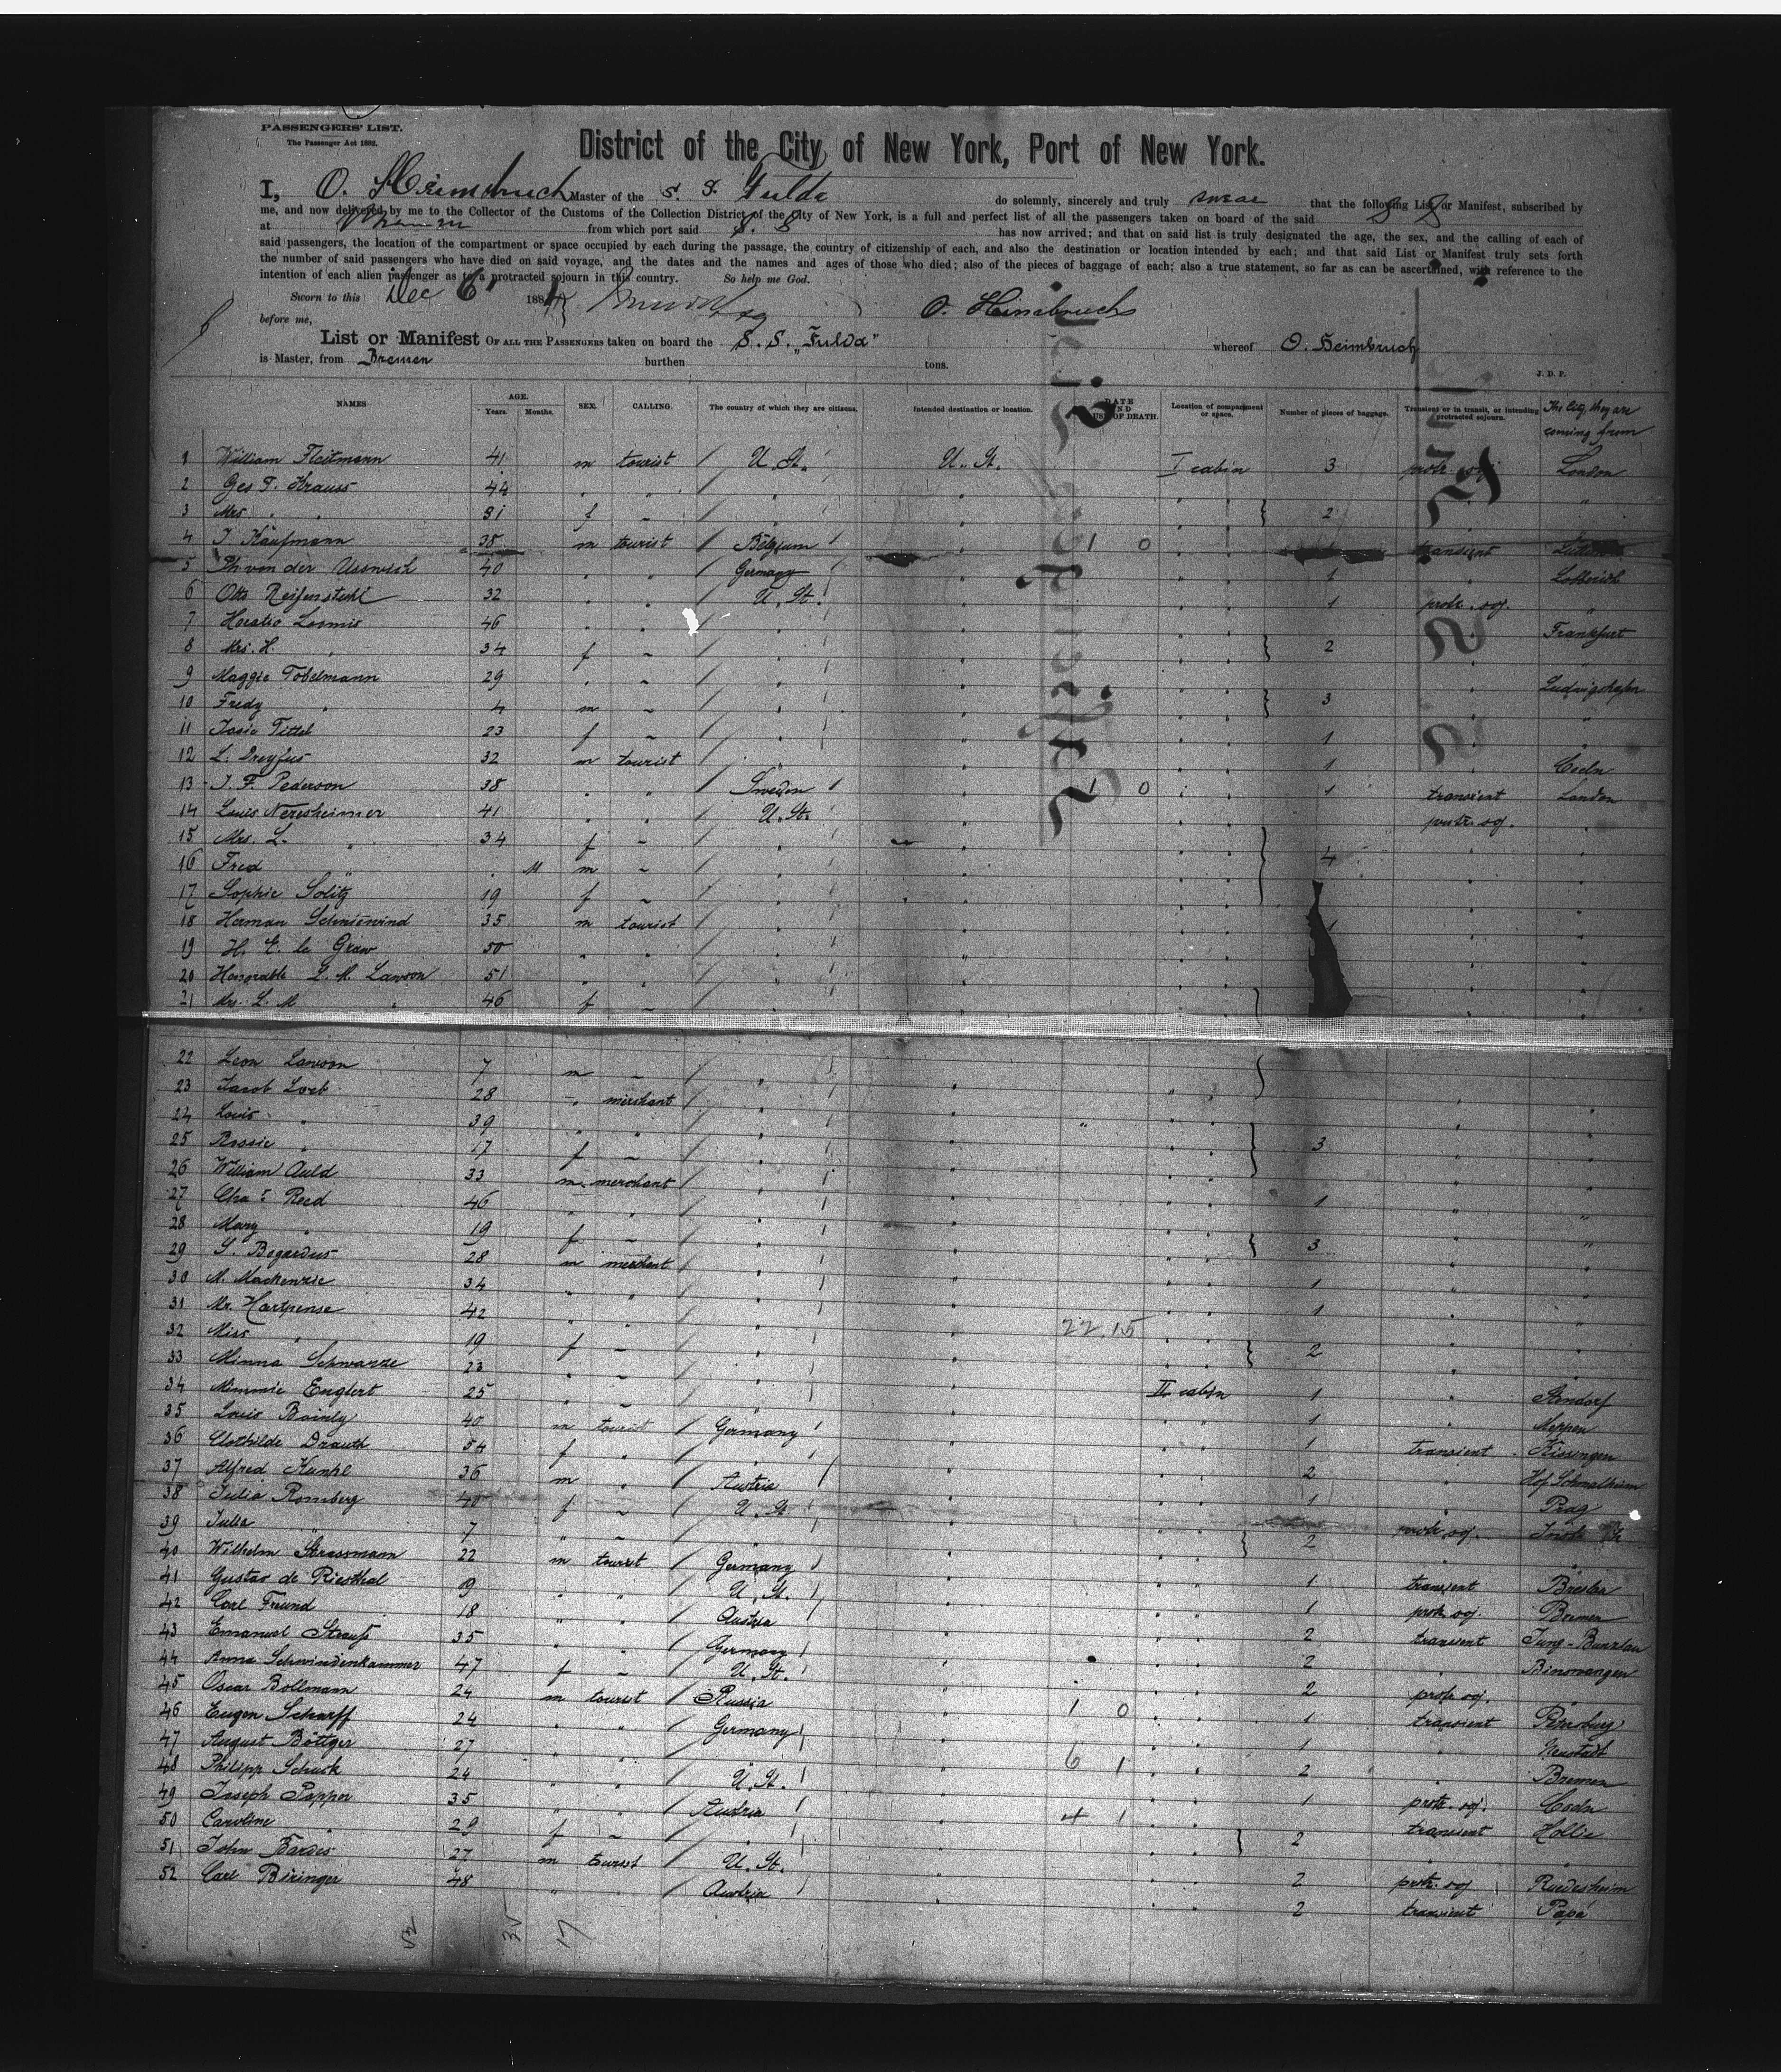 PASSENGERS' LIST.
The Passenger Act 1882.
District of the City of New York, Port of New York.
I, O. Heimbruch Master of the S. S. Fulda do solemnly, sincerely and truly swear that the following List or Manifest, subscribed by
me, and now delivered by me to the Collector of the Customs of the Collection District of the City of New York, is a full and perfect list of all the passengers taken on board of the said S S
at Bremen from which port said S. S has now arrived; and that on said list is truly designated the age, the sex, and the calling of each of
said passengers, the location of the compartment or space occupied by each during the passage, the country of citizenship of each, and also the destination or location intended by each; and that said List or Manifest truly sets forth
the number of said passengers who have died on said voyage, and the dates and the names and ages of those who died; also of the pieces of baggage of each; also a true statement, so far as can be ascertained, with reference to the
intention of each alien passenger as to a protracted sojourn in this country. So help me God.
Sworn to this Dec 6 188
before me, O. Heimbruch
List or Manifest OF ALL THE PASSENGERS taken on board the S. S. "Fulda" whereof O. Heimbruch
is Master, from Bremen burthen tons.
J. D. P.
NAMES AGE. Years. Months. SEX. CALLING. The country of which they are citizens. Intended destination or location. DATE AND CAUSE OF DEATH. Location of compartment or space. Number of pieces of baggage. Transient or in transit, or intending protracted sojourn. The City, they are coming from
1 William Fleitmann 41 m tourist U. St. U. St. I cabin 3 protr. soj London
2 Geo F. Krauss 44 " " "
3 Mrs " 31 f 2 "
4 J. Kaufmann 38 m tourist Belgium 1 0 transient
5 Ph. von der 40 " " Germany 1 "
6 Otto Reifenstuhl 32 " " U. St. 1 protr. soj. "
7 Horatio Loomis 46 " " " Frankfurt
8 Mrs. H. " 34 f 2 "
9 Maggie Tobelmann 29 " Ludwigshafen
10 Fredy " 4 m 3 "
11 Josie Tittel 23 f 1 "
12 L. Dreyfus 32 m tourist 1 " Coeln
13 J. F. Pederson 38 " " Sweden 1 0 1 transient London
14 Louis Neresheimer 41 " " U. St. protr. soj. "
15 Mrs. L. " 34 f 4
16 Fred " 11 m
17 Sophie Solitz 19 f
18 Herman Schniewind 35 m tourist 1
19 H. E. le Graw 50 " "
20 Honorable L. M. Lawson 51 " "
21 Mrs. L. M " 46 f
22 Leon Lawson 7 m
23 Jacob Loeb 28 " merchant
24 Louis " 39 " "
25 Rossie " 17 f 3
26 William Auld 33 m merchant
27 Chas. Reed 46 " " 1
28 Mary " 19 f 3
29 S. Bogardus 28 m merchant
30 M. Mackenzie 34 " " 1
31 Mr. Hartpense 42 " " 1
22.15
32 Miss " 19 f 2
33 Minna Schwarze 23 "
34 Mimmie Englert 25 " II cabin 1
35 Louis Bainly 40 m tourist Germany 1 Meppen
36 Clothilde Drauth 54 f " " 1 transient Kissingen
37 Alfred Kunkl 36 m " Austria 2 "
38 Julia Romberg 40 f U. St. 1 Prag
39 Julia " 7 " 2 protr. soj.
40 Wilhelm Strassmann 22 m tourist Germany
41 Gustav de Riesthal 19 " " U. St. 1 transient Breslau
42 Carl Freund 18 " " Austria 1 protr. soj. Bremen
43 Emanuel Strauß 35 " " Germany 2 transient Jung-Bunzlau
44 Anna Schwindenkammer 47 f U. St. 2 " Binswangen
45 Oscar Bollmann 24 m tourist Russia 1 0 2 protr. soj. "
46 Eugen Scharff 24 " " Germany 1 transient Petersburg
47 August Böttger 27 " " " 6 1 1 " Neustadt
48 Philipp Schuck 24 " " U. St. 2 " Bremen
49 Joseph Popper 35 " " Austria 4 1 1 protr. soj. Coeln
50 Caroline " 29 f " 2 transient Hollic
51 John Bardes 27 m tourist U. St. "
52 Carl Biringer 48 " " Austria 2 protr. soj Ruedesheim
2 transient Papa
52 35 17